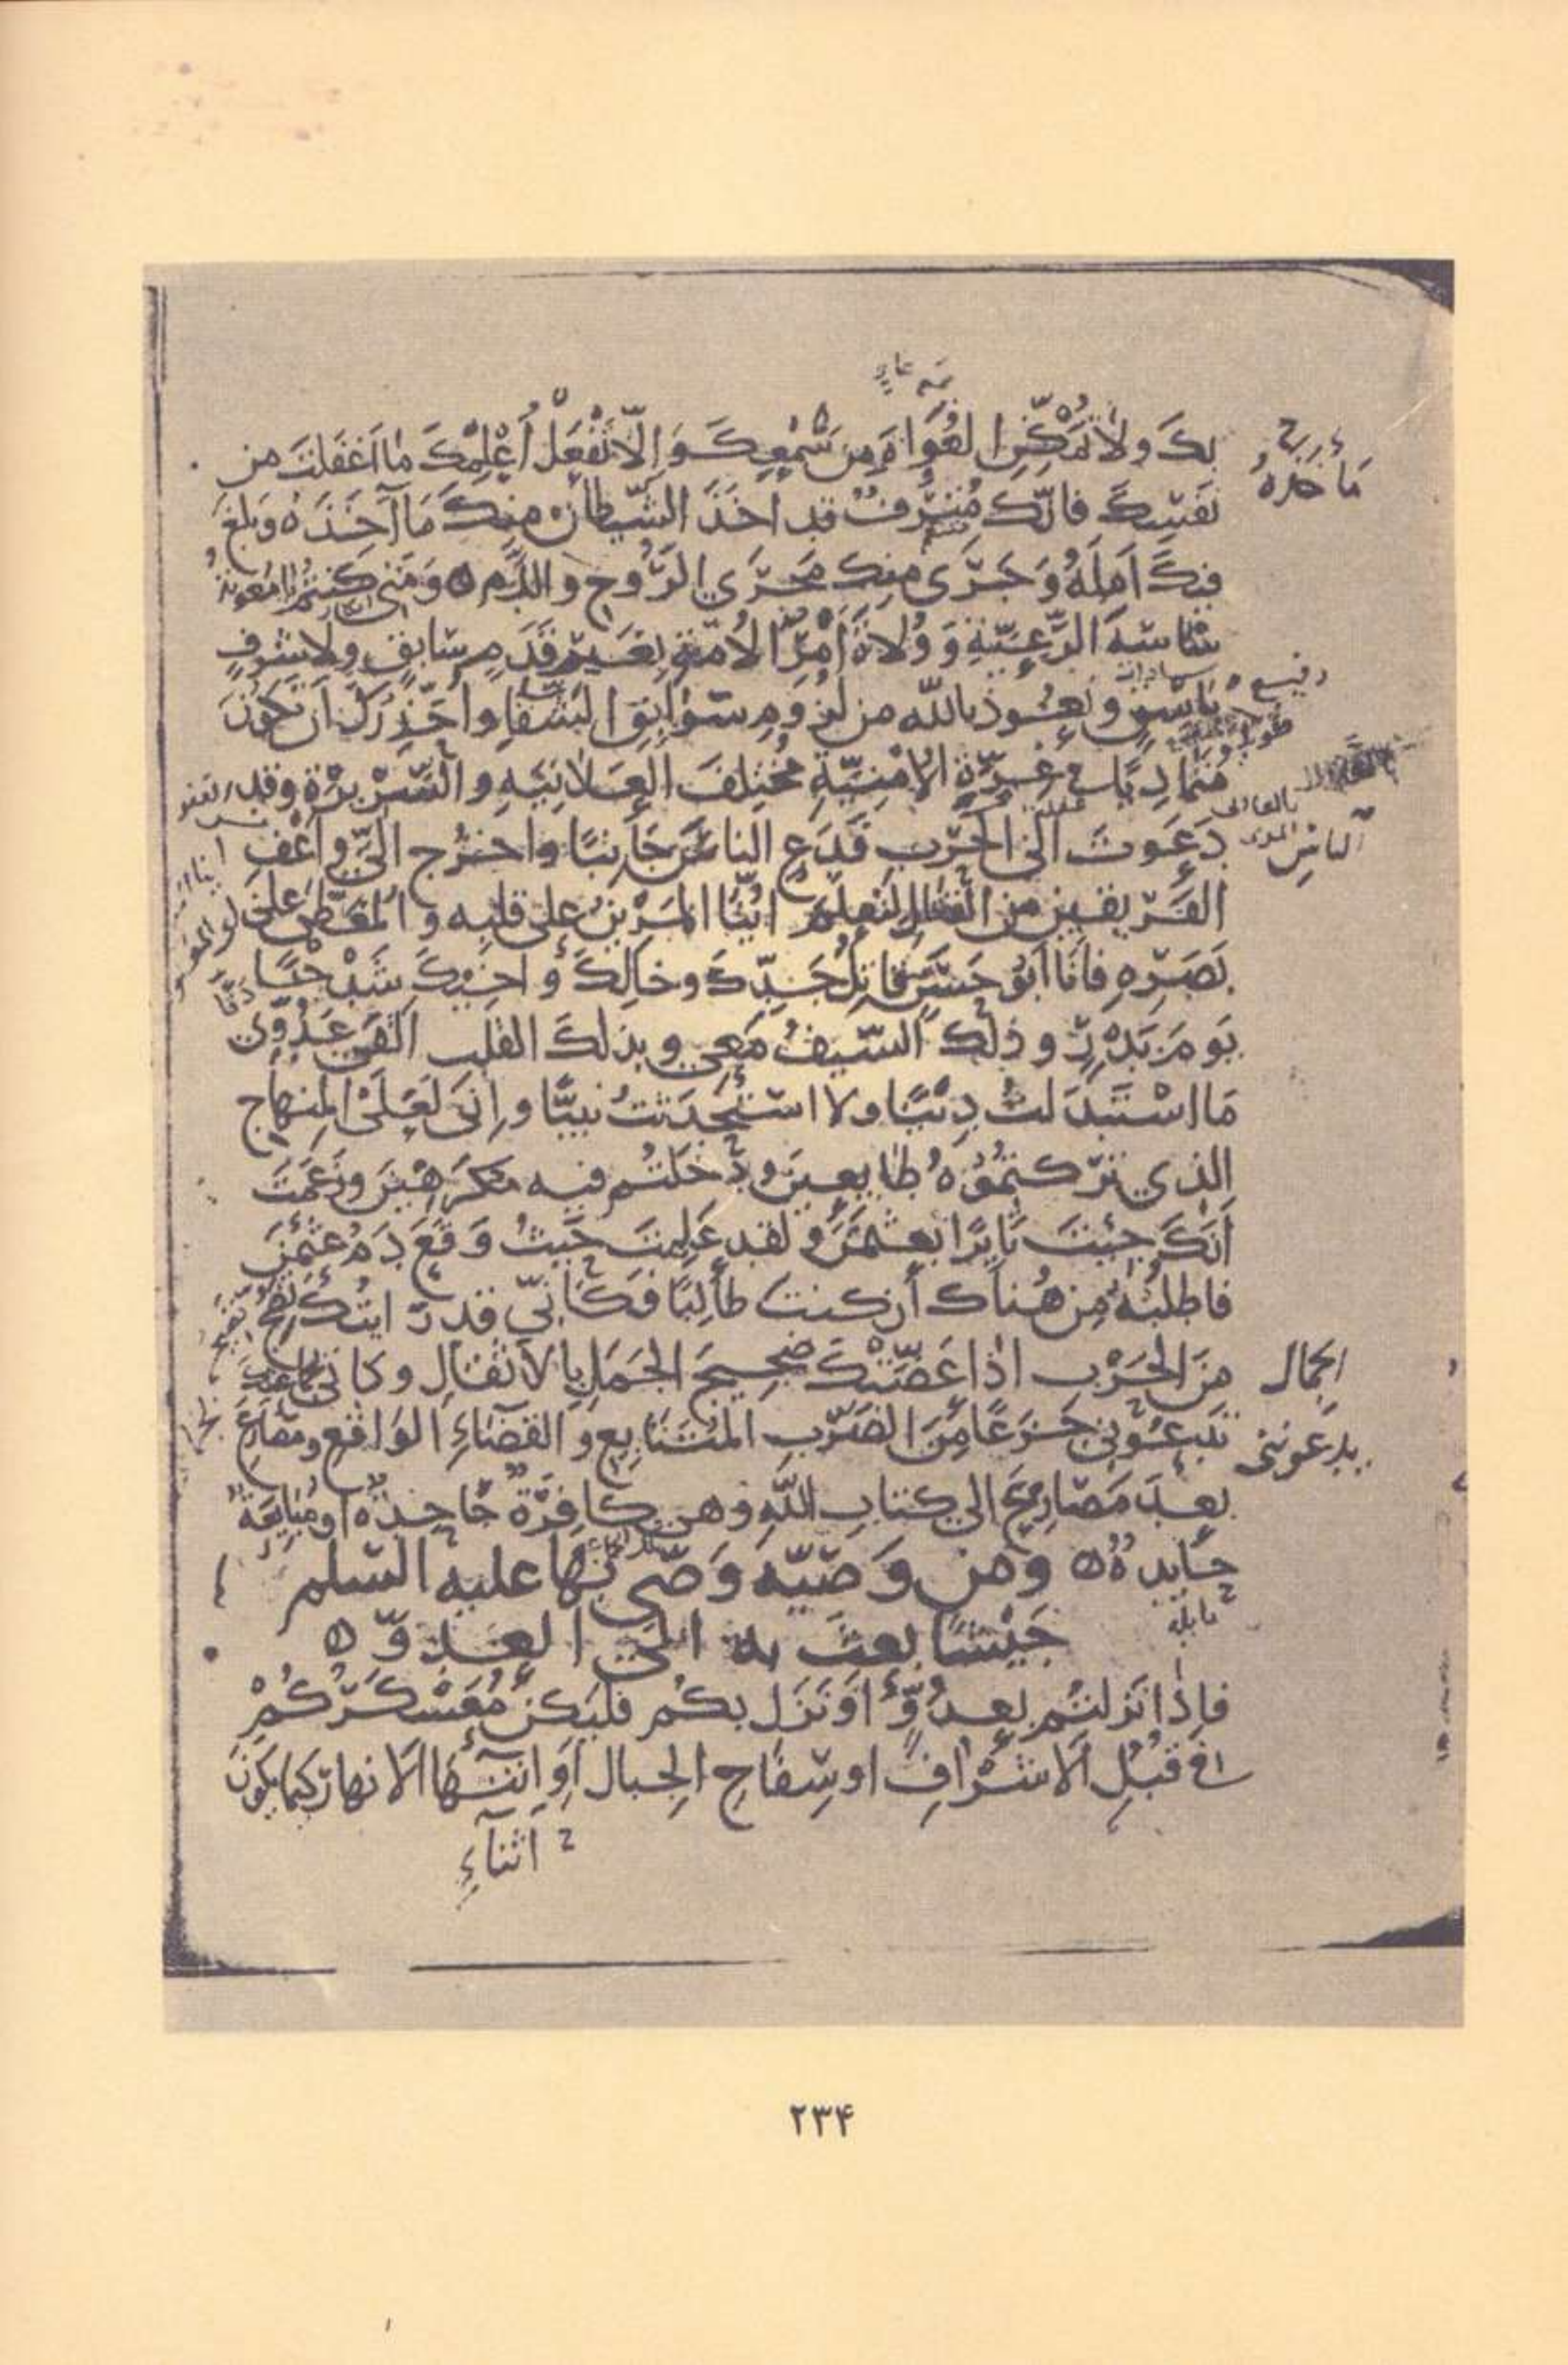 بك ولا تمكن الغواة من سمعك وإلا تفعل أعلمك ما أغفلت من
ما خذه
نفسك فانك مترف قد اخذ الشيطان منك مأخذه وبلغ
فيك امله وجرى منك مجرى الروح والدم ومتى كنتم يا معوية
ساسة الرعية وولاة أمر الأمة بغير قدم سابق ولا شرف
باسق ونعوذ بالله من لزوم سوابق الشقاء واحذرك أن تكون
متماديا في غرة الأمنية مختلف العلانية والسريرة وقد
دعوت الى الحرب فدع الناس جانبا واخرج الي واعف
الناس
الفريقين من القتال لتعلم اينا المرين على قلبه والمغطى على
بصره فانا ابو حسن قاتل جدك وخالك واخيك شدخا
يوم بدر وذلك السيف معي وبذلك القلب القى عدوي
ما استبدلت دينا ولا استحدثت نبيا واني لعلى المنهاج
الذي تركتموه طايعين ودخلتم فيه مكرهين وزعمت
أنك جئت ثايرا بعثمن ولقد علمت حيث وقع دم عثمن
فاطلبه من هناك أن كنت طالبا فكأني قد رايتك تضج
من الحرب اذا عضتك ضجيج الجمل بالاثقال وكاني بجماعتك
الجمال
تدعوني جزعا من الضرب المتتابع والقضاء الواقع ومصارع
يدعونني
بعد مصارع الى كتاب الله وهي كافرة جاحدة او مبايعة
حايدة ومن وصية وصى بها عليه السلم
جيشا بعث به الى العدو
فإذا نزلتم بعدو أو نزل بكم فليكن معسكركم
في قبل الاشراف او سفاح الجبال او اثناء الانهار كيما يكون
أثناء
٢٣۴